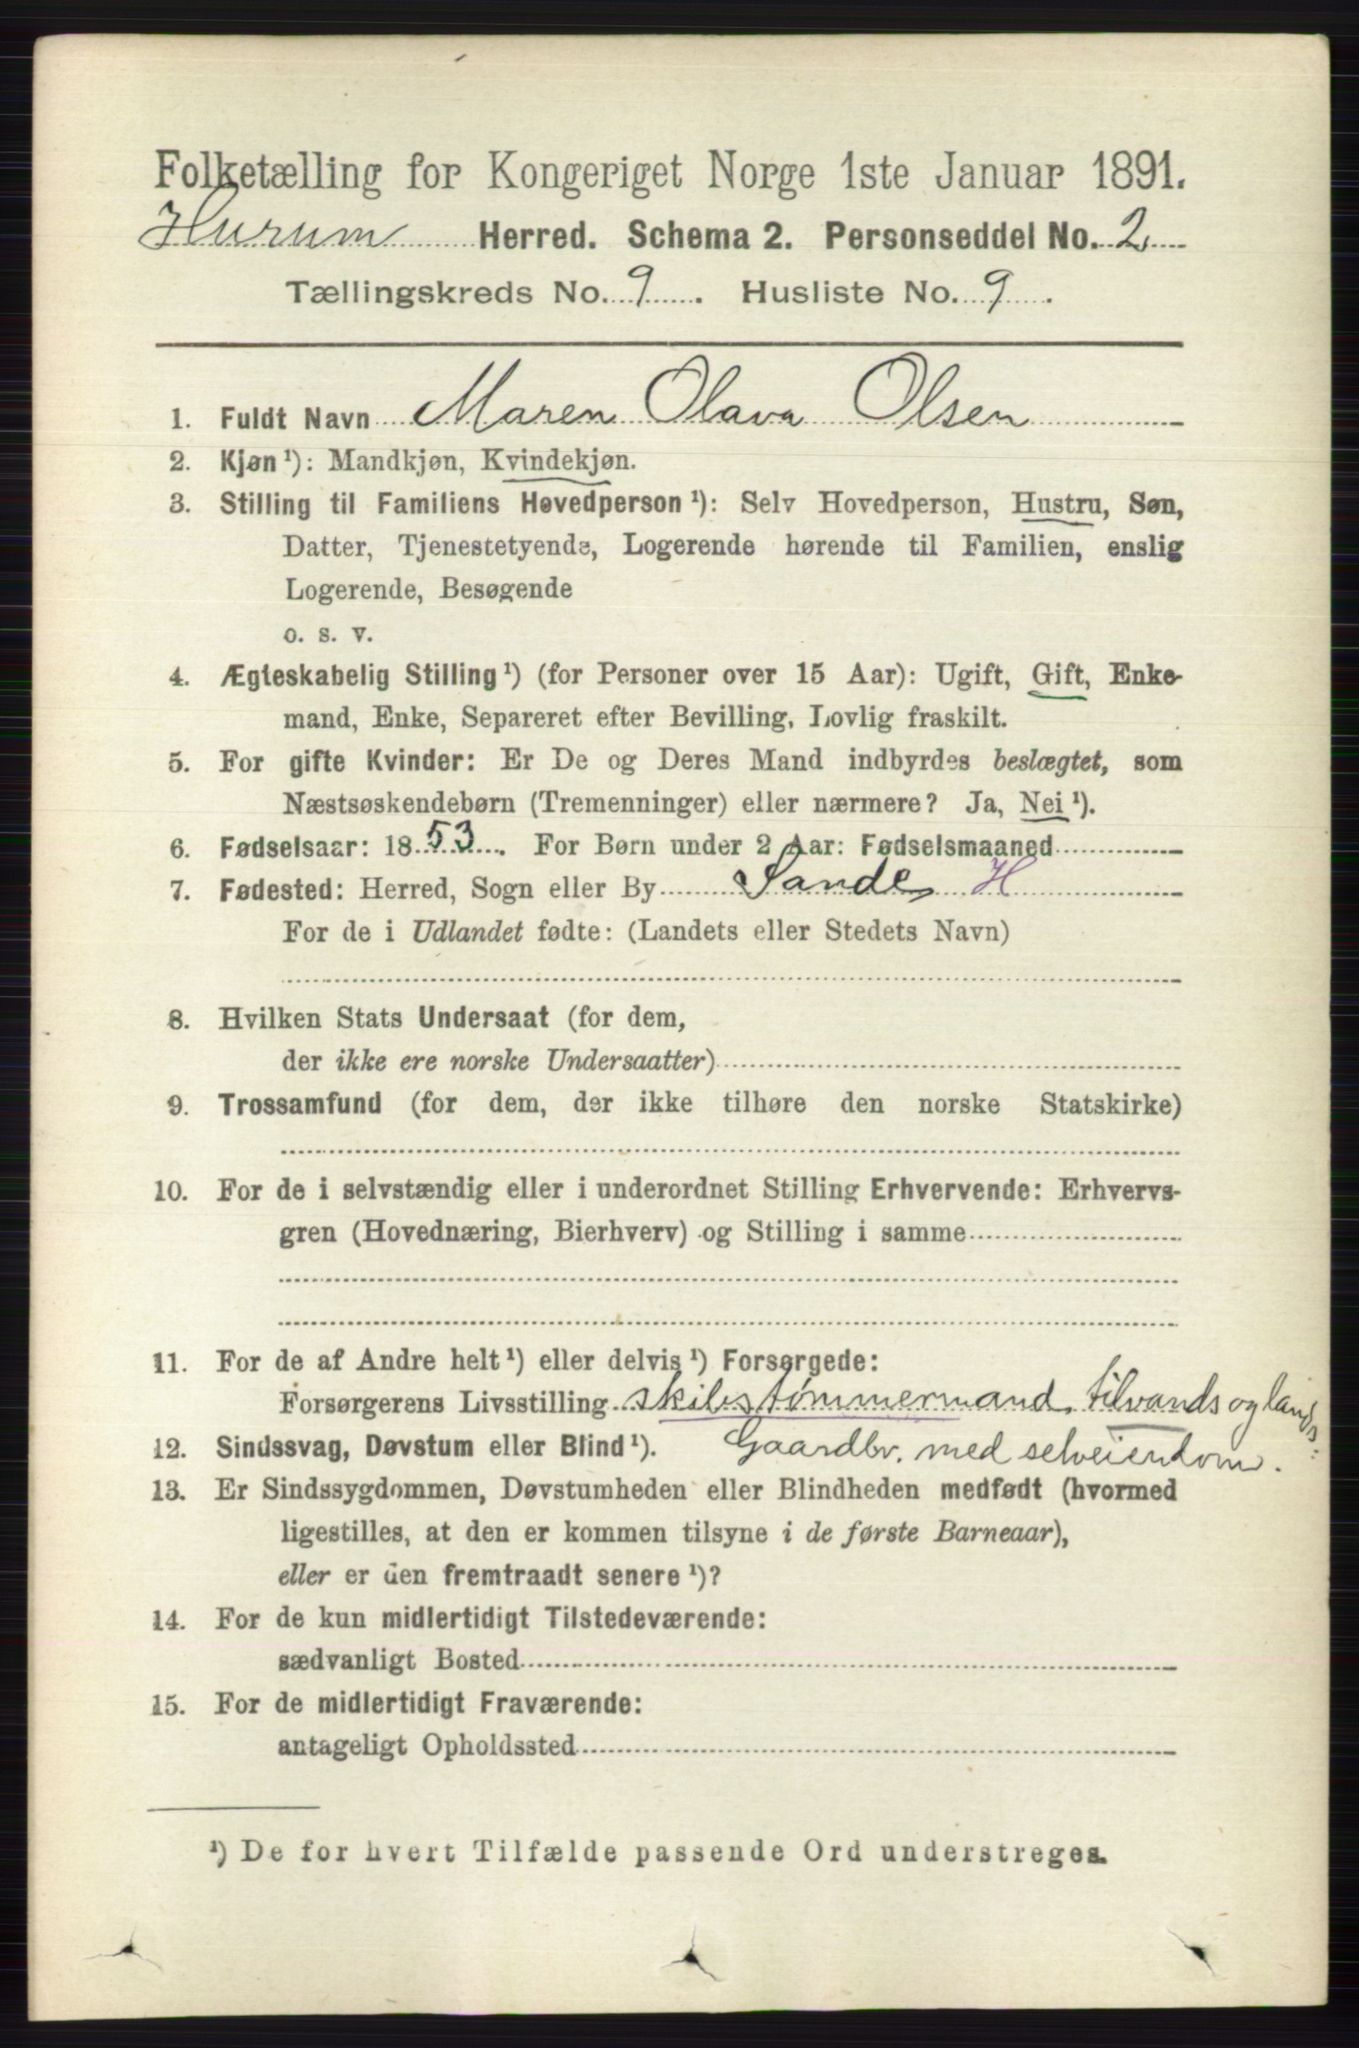 Folketælling for Kongeriget Norge 1ste Januar 1891.
Hurum Herred. Schema 2. Personseddel No. 2
Tællingskreds No. 9. Husliste No. 9.
1. Fuldt Navn Maren Olava Olsen
2. Kjøn¹): Mandkjøn, Kvindekjøn.
3. Stilling til Familiens Hovedperson¹): Selv Hovedperson, Hustru, Søn,
Datter, Tjenestetyende, Logerende hørende til Familien, enslig
Logerende, Besøgende
o. s. v.
4. Ægteskabelig Stilling¹) (for Personer over 15 Aar): Ugift, Gift, Enke-
mand, Enke, Separeret efter Bevilling, Lovlig fraskilt.
5. For gifte Kvinder: Er De og Deres Mand indbyrdes beslægtet, som
Næstsøskendebørn (Tremenninger) eller nærmere? Ja, Nei¹).
6. Fødselsaar: 1853. For Børn under 2 Aar: Fødselsmaaned
7. Fødested: Herred, Sogn eller By Sande H
For de i Udlandet fødte: (Landets eller Stedets Navn)
8. Hvilken Stats Undersaat (for dem,
der ikke ere norske Undersaatter)
9. Trossamfund (for dem, der ikke tilhøre den norske Statskirke)
10. For de i selvstændig eller i underordnet Stilling Erhvervende: Erhvervs-
gren (Hovednæring, Bierhverv) og Stilling i samme
11. For de af Andre helt¹) eller delvis¹) Forsørgede:
Forsørgerens Livsstilling skibstømmermand, tilvands og lands:
12. Sindssvag, Døvstum eller Blind¹). Gaardbr. med selveiendom.
13. Er Sindssygdommen, Døvstumheden eller Blindheden medfødt (hvormed
ligestilles, at den er kommen tilsyne i de første Barneaar),
eller er den fremtraadt senere¹)?
14. For de kun midlertidigt Tilstedeværende:
sædvanligt Bosted
15. For de midlertidigt Fraværende:
antageligt Opholdssted
¹) De for hvert Tilfælde passende Ord understreges.